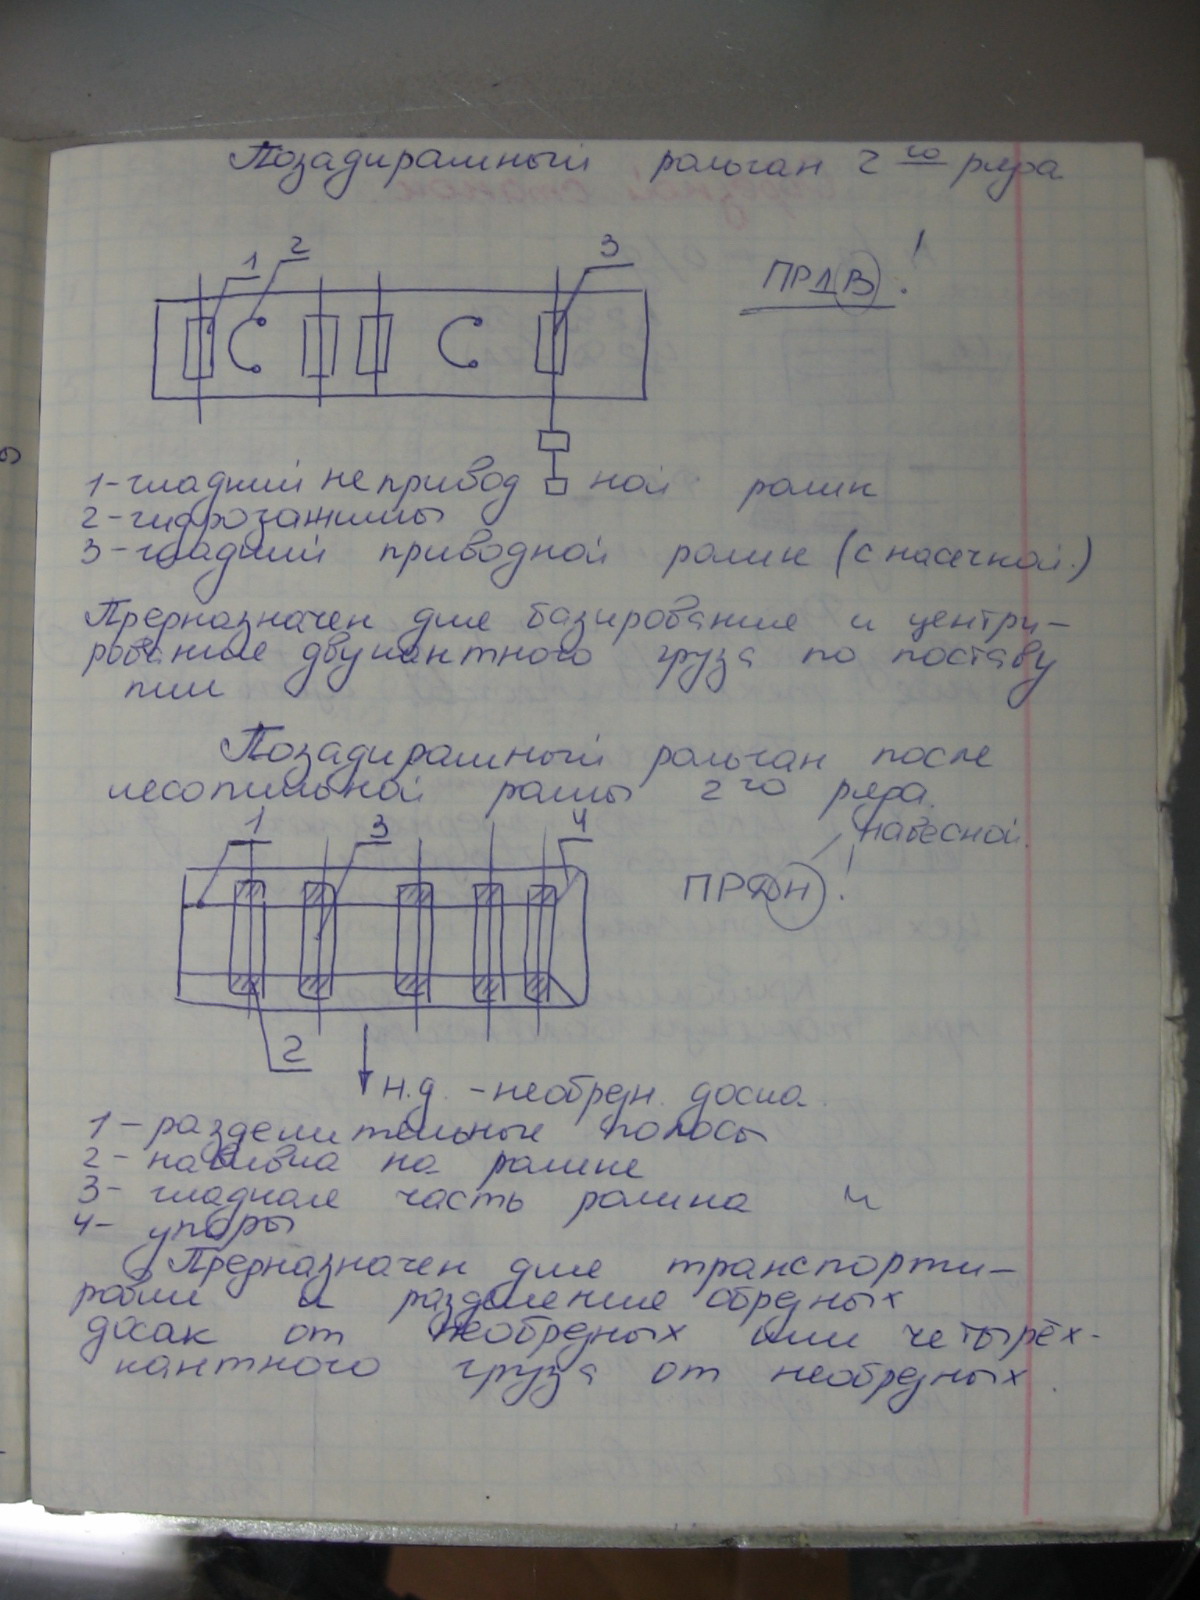 Позадирамный рольган 2го ряда
1 2 3
ПРДВ!
1-гладкий неприводной ролик
2-гидрозажимы
3-гладкий приводной ролик (с насечкой.)
Предназначен для базирование и центри-
рование двукантного груза по поставу
пил
Позадирамный рольган после
лесопильной рамы 2го ряда.
1 3 4
навесной.
ПРДН!
2
н.д. -необрезн. доска.
1-разделительные полосы
2-навивка на ролике
3- гладкая часть ролика
4- упоры
Предназначен для транспорти-
ровки и разделение обрезных
досак от необрезных или четырёх-
кантного груза от необрезных.